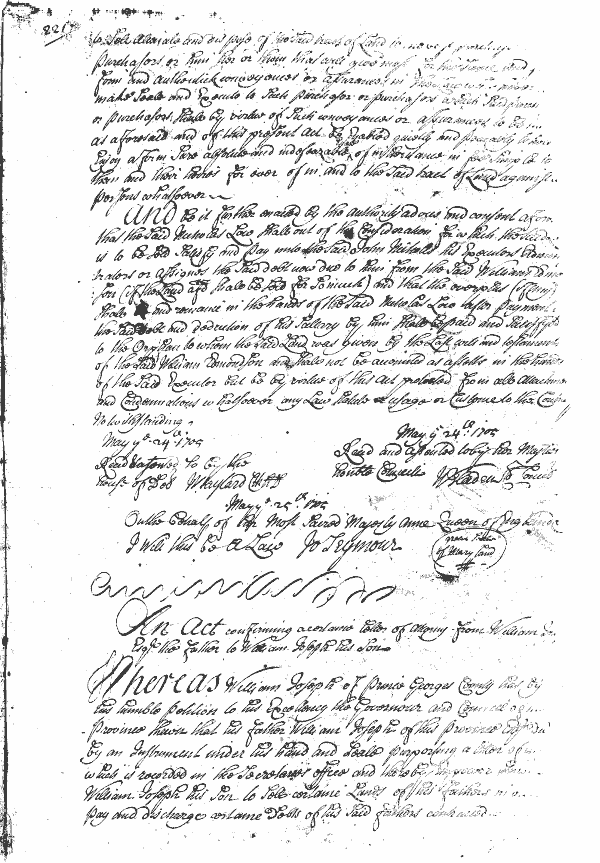 221
to Sell Alienate and dispose of the said tract of Land to
purchasers or him her or them that will give most
form and authentick conveyances or assurances in
make Seale and Execute to Such purchaser or purchasers which said
or purchasers shall by virtue of Such conveyances or assurances to be
as aforesaid and of this present Act be Enabled quietly and peaceably to
Enjoy a firm Sure absolute and indefeazable of inheritance in fee simple to
them and their heires for ever of in and to the Said tract of Land against
persons whatsoever
And be it further enacted by the Authority advice and consent afore
that the Said Nicholas Low shall out of the Consideration for which the land
is to be Sold Satisfy and pay unto the Said John Nicholls his Executors
rators or Assignes the Said debt was due to him from the Said William
son
shall and remaine in the hands of the Said Nicholas Low after payment
the Said debt and deduction of his Sallary by him shall be paid and Satisfyed
to the Orphan to whom the Said Land was given by the Last will and testament
of the Said William Edmondson and shall not be accounted as assetts in the hands
of the Said Executor but be by virtue of this Act protected from all Attachments
and Condemnations whatsoever any Law Statute usage or Custome to the Contrary
Notwithstanding
May ye 24th 1705
Read and assented to by the
house of Del W Taylard
May ye 24th 1705
Read and assented to by her Majtys
honble Councill W Bladen Cl Council
May ye 25th 1705
On the behalfe of her Most Sacred Majesty Anne Queen of England
I Will this be a Law Jo Seymour
great Seale
of Maryland
An Act confirming a certaine letter of Attorny from William
Esqr the father to William Joseph his Son
Whereas William Joseph of Prince Georges County hath by
his humble petition to his Excellency the Governour and Councill
Province shown that his father William Joseph of this Province
by an Instrument under his hand and Seale purporting a letter of
which is recorded in the Secretarys office and thereby
William Joseph his Son to Sell certaine Lands of his fathers in
pay and discharge certaine debts of his Said fathers contracted